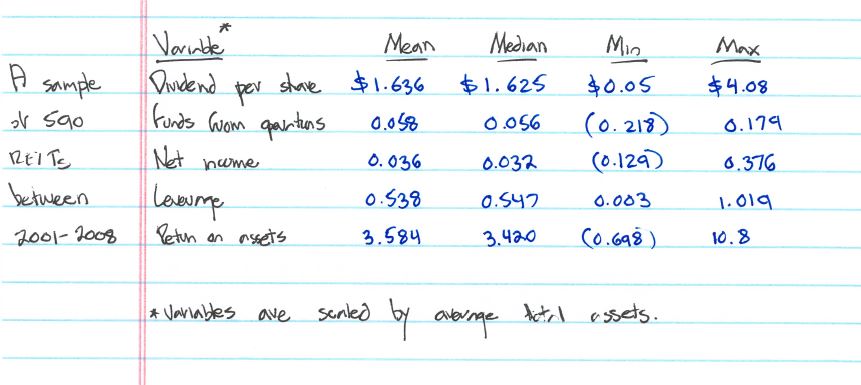 Variable* Mean Median Min Max
A sample Dividend per share $1.636 $1.625 $0.05 $4.08
of 590 Funds from operations 0.058 0.056 (0.218) 0.179
REITs Net income 0.036 0.032 (0.129) 0.376
between Leverage 0.538 0.547 0.003 1.019
2001-2008 Return on assets 3.584 3.420 (0.698) 10.8
*Variables are scaled by average total assets.